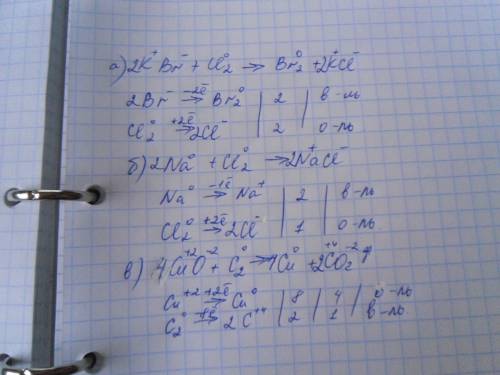 а) 2K⁺Br⁻ + Cl₂⁰ → Br₂⁰ + 2K⁺Cl⁻
2Br⁻ –2ē→ Br₂⁰ | 2 | в-ль
Cl₂⁰ +2ē→ 2Cl⁻ | 2 | о-ль
б) 2Na⁰ + Cl₂⁰ → 2Na⁺Cl⁻
Na⁰ –1ē→ Na⁺ | 2 | в-ль
Cl₂⁰ +2ē→ 2Cl⁻ | 1 | о-ль
в) 4Cu⁺²O⁻² + C₂⁰ → 4Cu⁰ + 2C⁺⁴O₂⁻²
Cu⁺² +2ē→ Cu⁰ | 8 | 4 | о-ль
C₂⁰ –8ē→ 2C⁺⁴ | 2 | 1 | в-ль